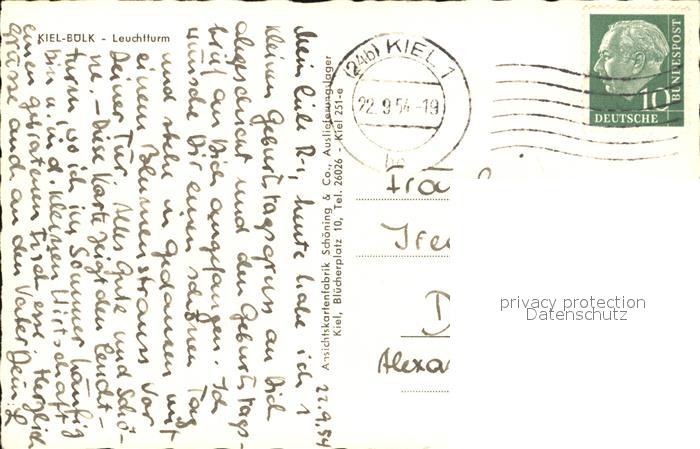 KIEL-BÜLK - Leuchtturm
22.9.54
Mein liebe R-1, heute habe ich 1
kleinen Geburtstagsgruss an Dich
abgeschickt und den Geburtstags-
brief an Dich angefangen. Ich
wünsche Dir einen schönen Tag
und stehe in Gedanken mit
einem Blumenstrauss vor
Deiner Tür. Alles Gute und Schö-
ne. - Diese Karte zeigt den Leucht-
turm, wo ich im Sommer häufig
bin u. in d. kleinen Wirtschaft
einen gebratenen Fisch esse. Herzlich
Grüsse auch an den Vater
Ansichtskartenfabrik Schöning & Co., Auslieferungslager
Kiel, Blücherplatz 10, Tel. 26026 - Kiel 251-e
(24b) KIEL 1
22.9.54-19
bc
10
DEUTSCHE
BUNDESPOST
Frau
Alexa
privacy protection
Datenschutz